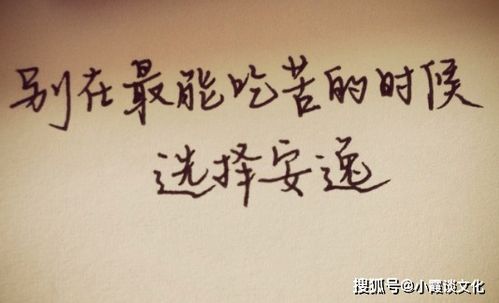 别在最能吃苦的时候
选择安逸
搜狐号@小霞谈文化